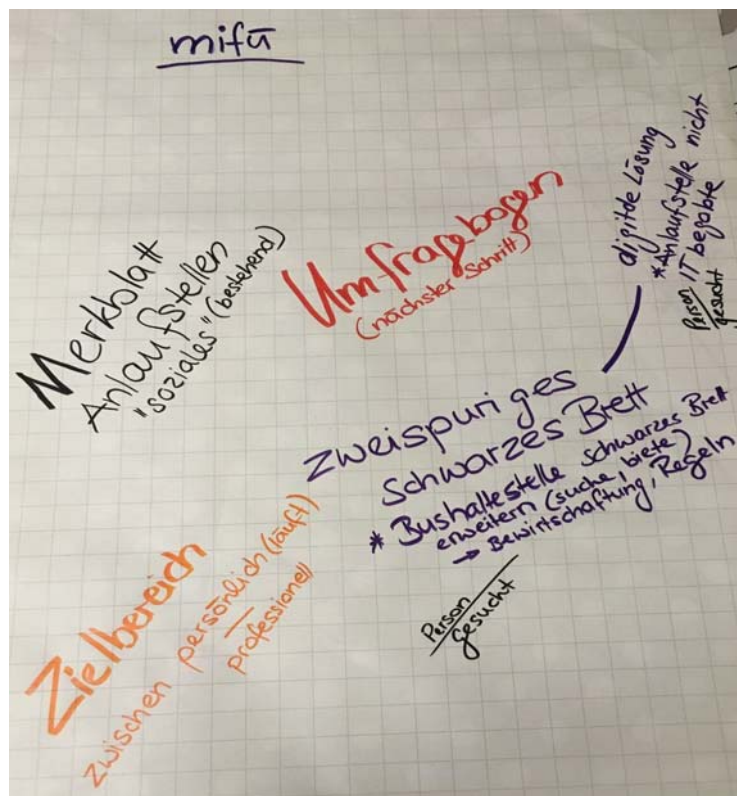 mifū
Merkblatt
Anlaufstellen
"soziales" (bestehend)
Umfragebogen
(nächster Schritt)
digitale Lösung
*Anlaufstelle nicht
IT begabte
Person
gesucht
zweispuriges
schwarzes Brett
* Bushaltestelle schwarzes Brett
erweitern (suche, biete)
→ Bewirtschaftung, Regeln
Person
gesucht
Zielbereich
zwischen persönlich (läuft)
professionell